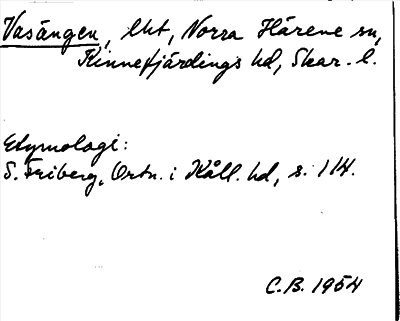 Vasängen, lht, Norra Härene sn,
Kinnefjärdings hd, Skar. l.
Etymologi:
S. Friberg, Ortn. i Kåll. hd, s. 114.
C.B. 1954